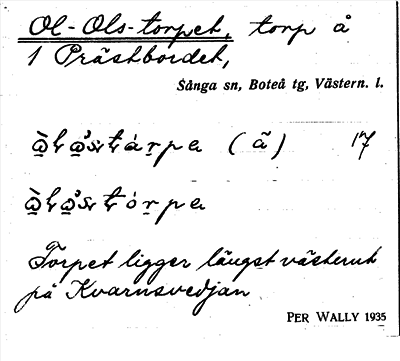 Ol-Ols-torpet, torp å
1 Prästbordet,
Sånga sn, Boteå tg, Västern. l.
(ã) 17
Torpet ligger längst västerut
på Kvarnsvedjan
PER WALLY 1935